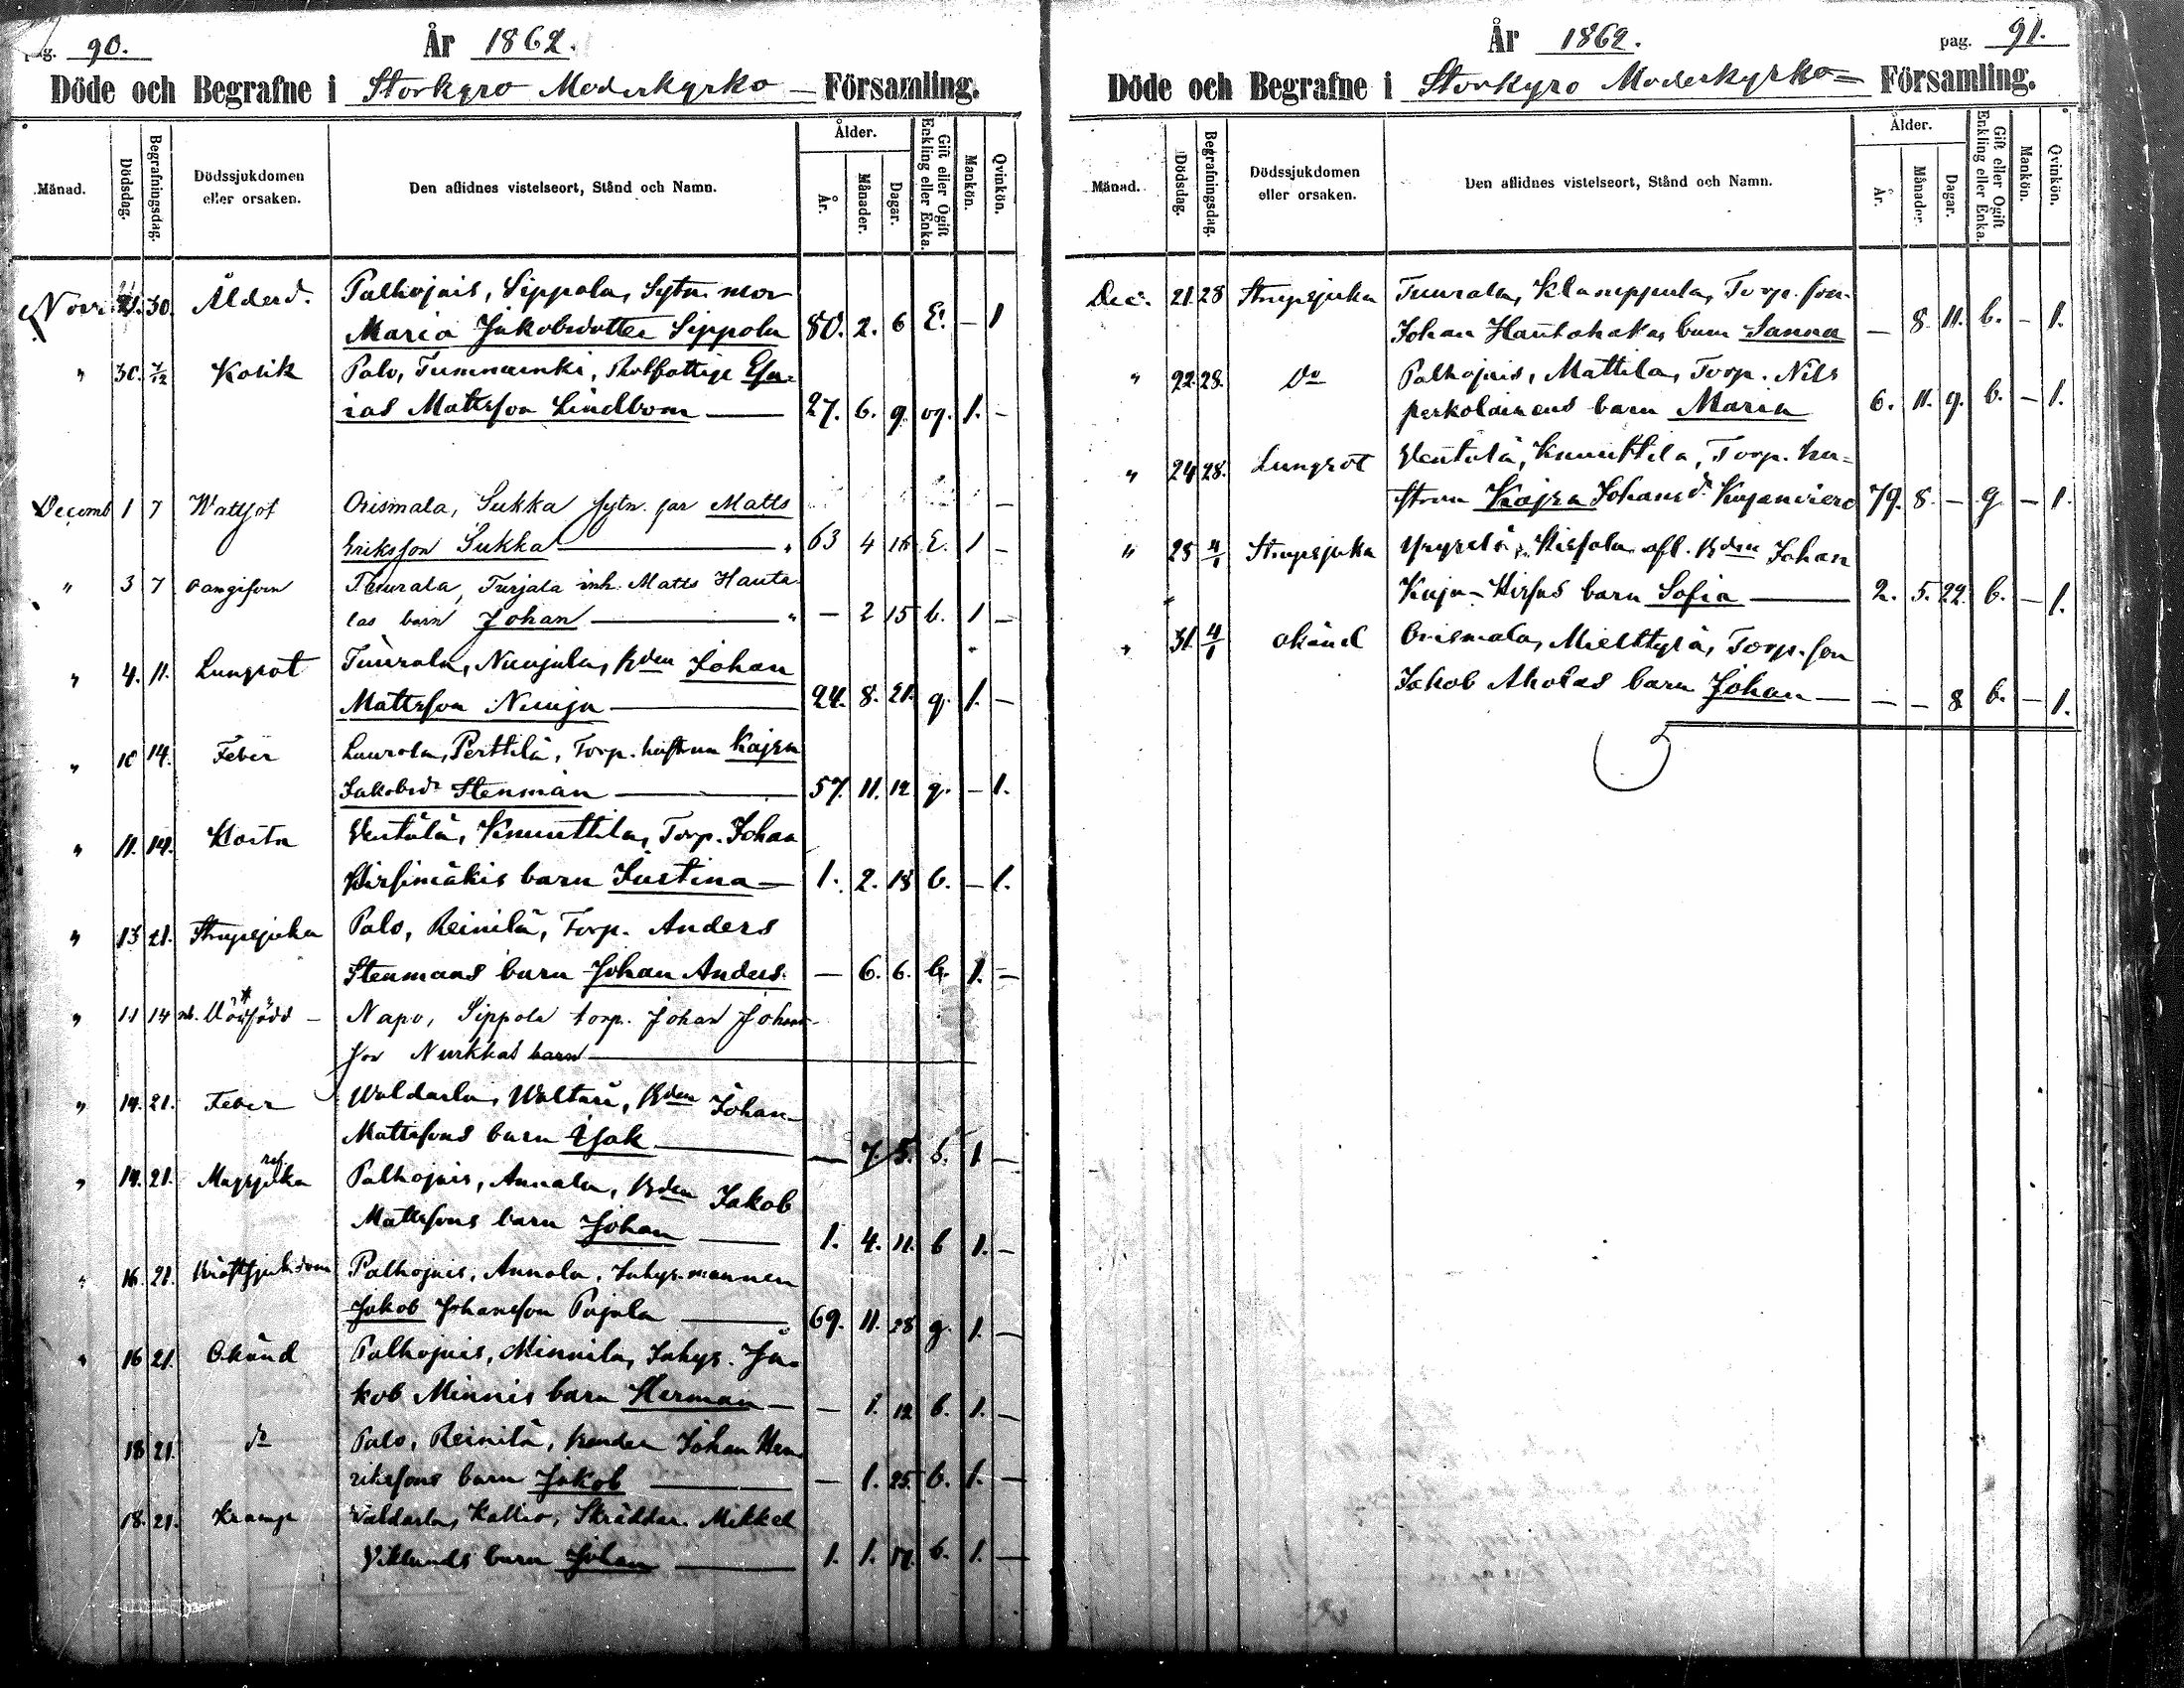 pag. 90.
År 1862.
Döde och Begrafne i Storkyro Moderkyrko- Församling.
Månad. Dödsdag. Begrafningsdag. Dödssjukdomen eller orsaken. Den aflidnes vistelseort, Stånd och Namn. Ålder. År. Månader. Dagar. Gift eller Ogift Enkling eller Enka. Mankön. Qvinkön.
Nov. 21. 30. Ålderd. Palhojais, Sippola, Sytn. mor
Maria Jakobsdotter Sippola 80. 2. 6 E. — 1
" 30. 7/12 Kolik Palo, Tummunki, Rotfattige Esa-
ias Mattsson Lindbom — 27. 6. 9. og. 1. —
Decemb 1 7 Wattsot Orismala, Sukka Sytn. far Matts
Eriksson Sukka — 63 4 E. 1 —
" 3 7 oangifven Tuurala, Turjala inh. Matts Hauta-
las barn Johan — — 2 15 b. 1 —
" 4. 11. Lungsot Tuurala, Nuujala, Bden Johan
Mattsson Nuuja — 24. 8. 21. g. 1. —
" 10 14. Feber Laurola, Perttilä, Torp. hustrun Kajsa
Jakobsdr Stenman — 57. 11. 12 g. — 1.
" 11. 14. Hosta Ventälä, Knuuttila, Torp. Johan
Hirsimäkis barn Justina — 1. 2. 18 b. — 1.
" 13 21. Strupsjuka Palo, Reinilä, Torp. Anders
Stenmans barn Johan Anders. — 6. 6. b. 1. —
" 11 14 nb. Dödfödd — Napo, Sippola torp. Johan Johans-
son Nurkkas barn —
" 14. 21. Feber Waldarla, Waltari, Bden Johan
Mattsons barn Isak — — 7. 5. b. 1. —
" 14. 21. Palhojais, Annala, Bden Jakob
Mattsons barn Johan — 1. 4. 11. b 1. —
" 16. 21. Kräftsjukdom Palhojais, Annola, Inhys. mannen
Jakob Johansson Pajula — 69. 11. 28 g. 1. —
" 16 21. Okänd Palhojais, Minnila, Inhys. Ja-
kob Minnis barn Herman — — 1. 12 b. 1. —
18 21. do Palo, Reinilä, Bonden Johan Hen-
rikssons barn Jakob — — 1. 25. b. 1. —
18. 21. Kramp Valdarla, Kallio, Skräddar. Mikkel
Viklunds barn Johan — 1. 1. 17. b. 1. —
År 1862.
pag. 91.
Döde och Begrafne i Storkyro Moderkyrko= Församling.
Månad. Dödsdag. Begrafningsdag. Dödssjukdomen eller orsaken. Den aflidnes vistelseort, Stånd och Namn. Ålder. År. Månader. Dagar. Gift eller Ogift Enkling eller Enka. Mankön. Qvinkön.
Dec. 21. 28 Strupsjuka Tuurala, Klemppula, Torp. son
Johan Hautahakas barn Sanna — 8. 11. b. — 1.
" 22. 28. Do Palhojais, Mattila, Torp. Nils
perkolainens barn Maria 6. 11. 9. b. — 1.
" 24 28. Lungsot Ventälä, Knuuttila, Torp. hu-
strun Kajsa Johansdr 79. 8. — g — 1.
" 25 4/1 Strupsjuka Yryselä, Hirsola afl. Bden Johan
Kuja-Hirsus barn Sofia — 2. 5. 22. b. — 1.
" 31. 4/1 okänd Orismala, Mielttylä, Torp. son
Jakob Aholas barn Johan — — — 8 b. — 1.